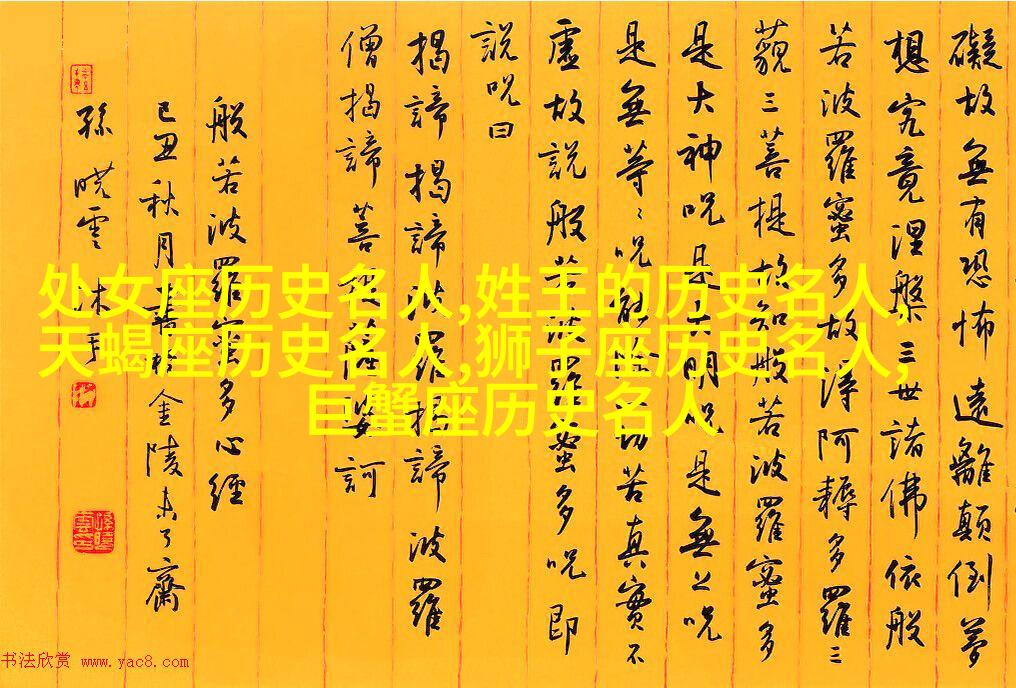 礙故無有恐怖遠離顛倒夢
想究竟涅槃三世諸佛依般
若波羅蜜多故得阿耨多羅三
藐三菩提故知般若波羅蜜多
是大神呪是大明呪是無上呪
是無等〻呪能除一切苦真實不
虛故說般若波羅蜜多呪即
說呪曰
揭諦揭諦波羅揭諦波羅
僧揭諦菩提薩婆訶
般若波羅蜜多心經
己丑秋月書於金陵未了齋
孫曉雲沐手
处女座历史名人,姓王的历史名人,
天蝎座历史名人,狮子座历史名人,
巨蟹座历史名人
书法欣赏 www.yac8.com